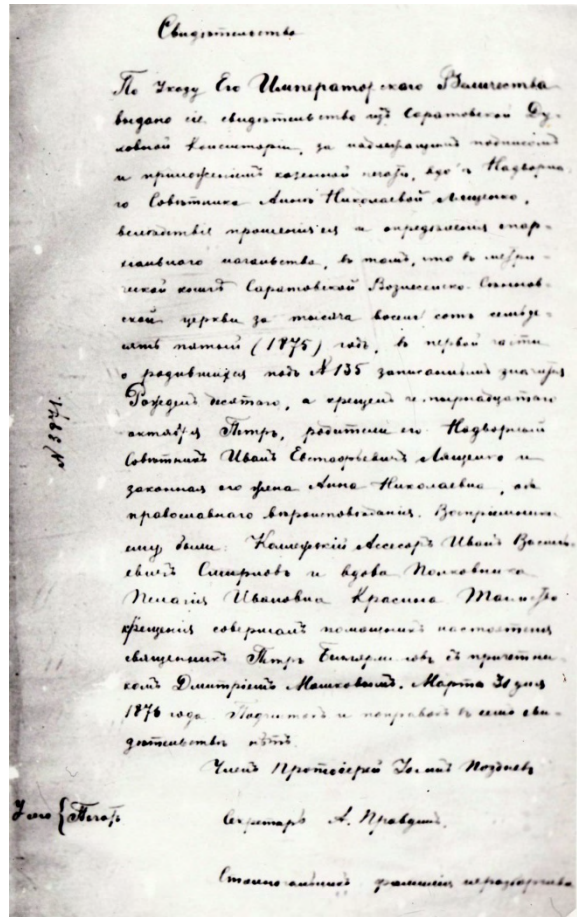 Свидѣтельство
По Указу Его Императорскаго Величества
выдано сіе свидѣтельство изъ Саратовской Ду-
ховной Консисторіи, за надлежащимъ подписомъ
и приложеніемъ казенной печати, вдовѣ Надворна-
го Совѣтника Аннѣ Николаевой Лященко,
вслѣдствіе прошенія ея и опредѣленія епар-
хіальнаго начальства, въ томъ, что въ метри-
ческой книгѣ Саратовской Вознесенско-Сѣнновской
церкви за тысяча восемь сотъ семьде-
сятъ пятый (1875) годъ, въ первой части
о родившихся подъ № 135 записаннымъ значится
Рожденъ десятаго, а крещенъ четырнадцатаго
октября Петръ, родители его: Надворный
Совѣтникъ Иванъ Евстафьевичъ Лященко и
законная его жена Анна Николаевна, оба
православнаго вѣроисповѣданія. Воспріемники
ему были: Коллежскій Ассесоръ Иванъ Василь-
евичъ Смирновъ и вдова Полковника
Пелагія Ивановна Красина Таинство
крещенія совершалъ помощникъ настоятеля
священникъ Петръ съ причетни-
комъ Дмитріемъ Мошковымъ. Марта 30 дня
1876 года. Подчистокъ и поправокъ въ семъ сви-
дѣтельствѣ нѣтъ.
№ 3871.
Членъ Протоіерей Позднев
У сего {Печать
Секретарь А. Правдинъ.
Столоначальникъ фамилія неразборчива